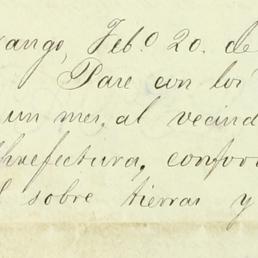 ango, Feb.o 20. de
Pase con los
un mes, al vecind
refectura, confor
l sobre tierras y